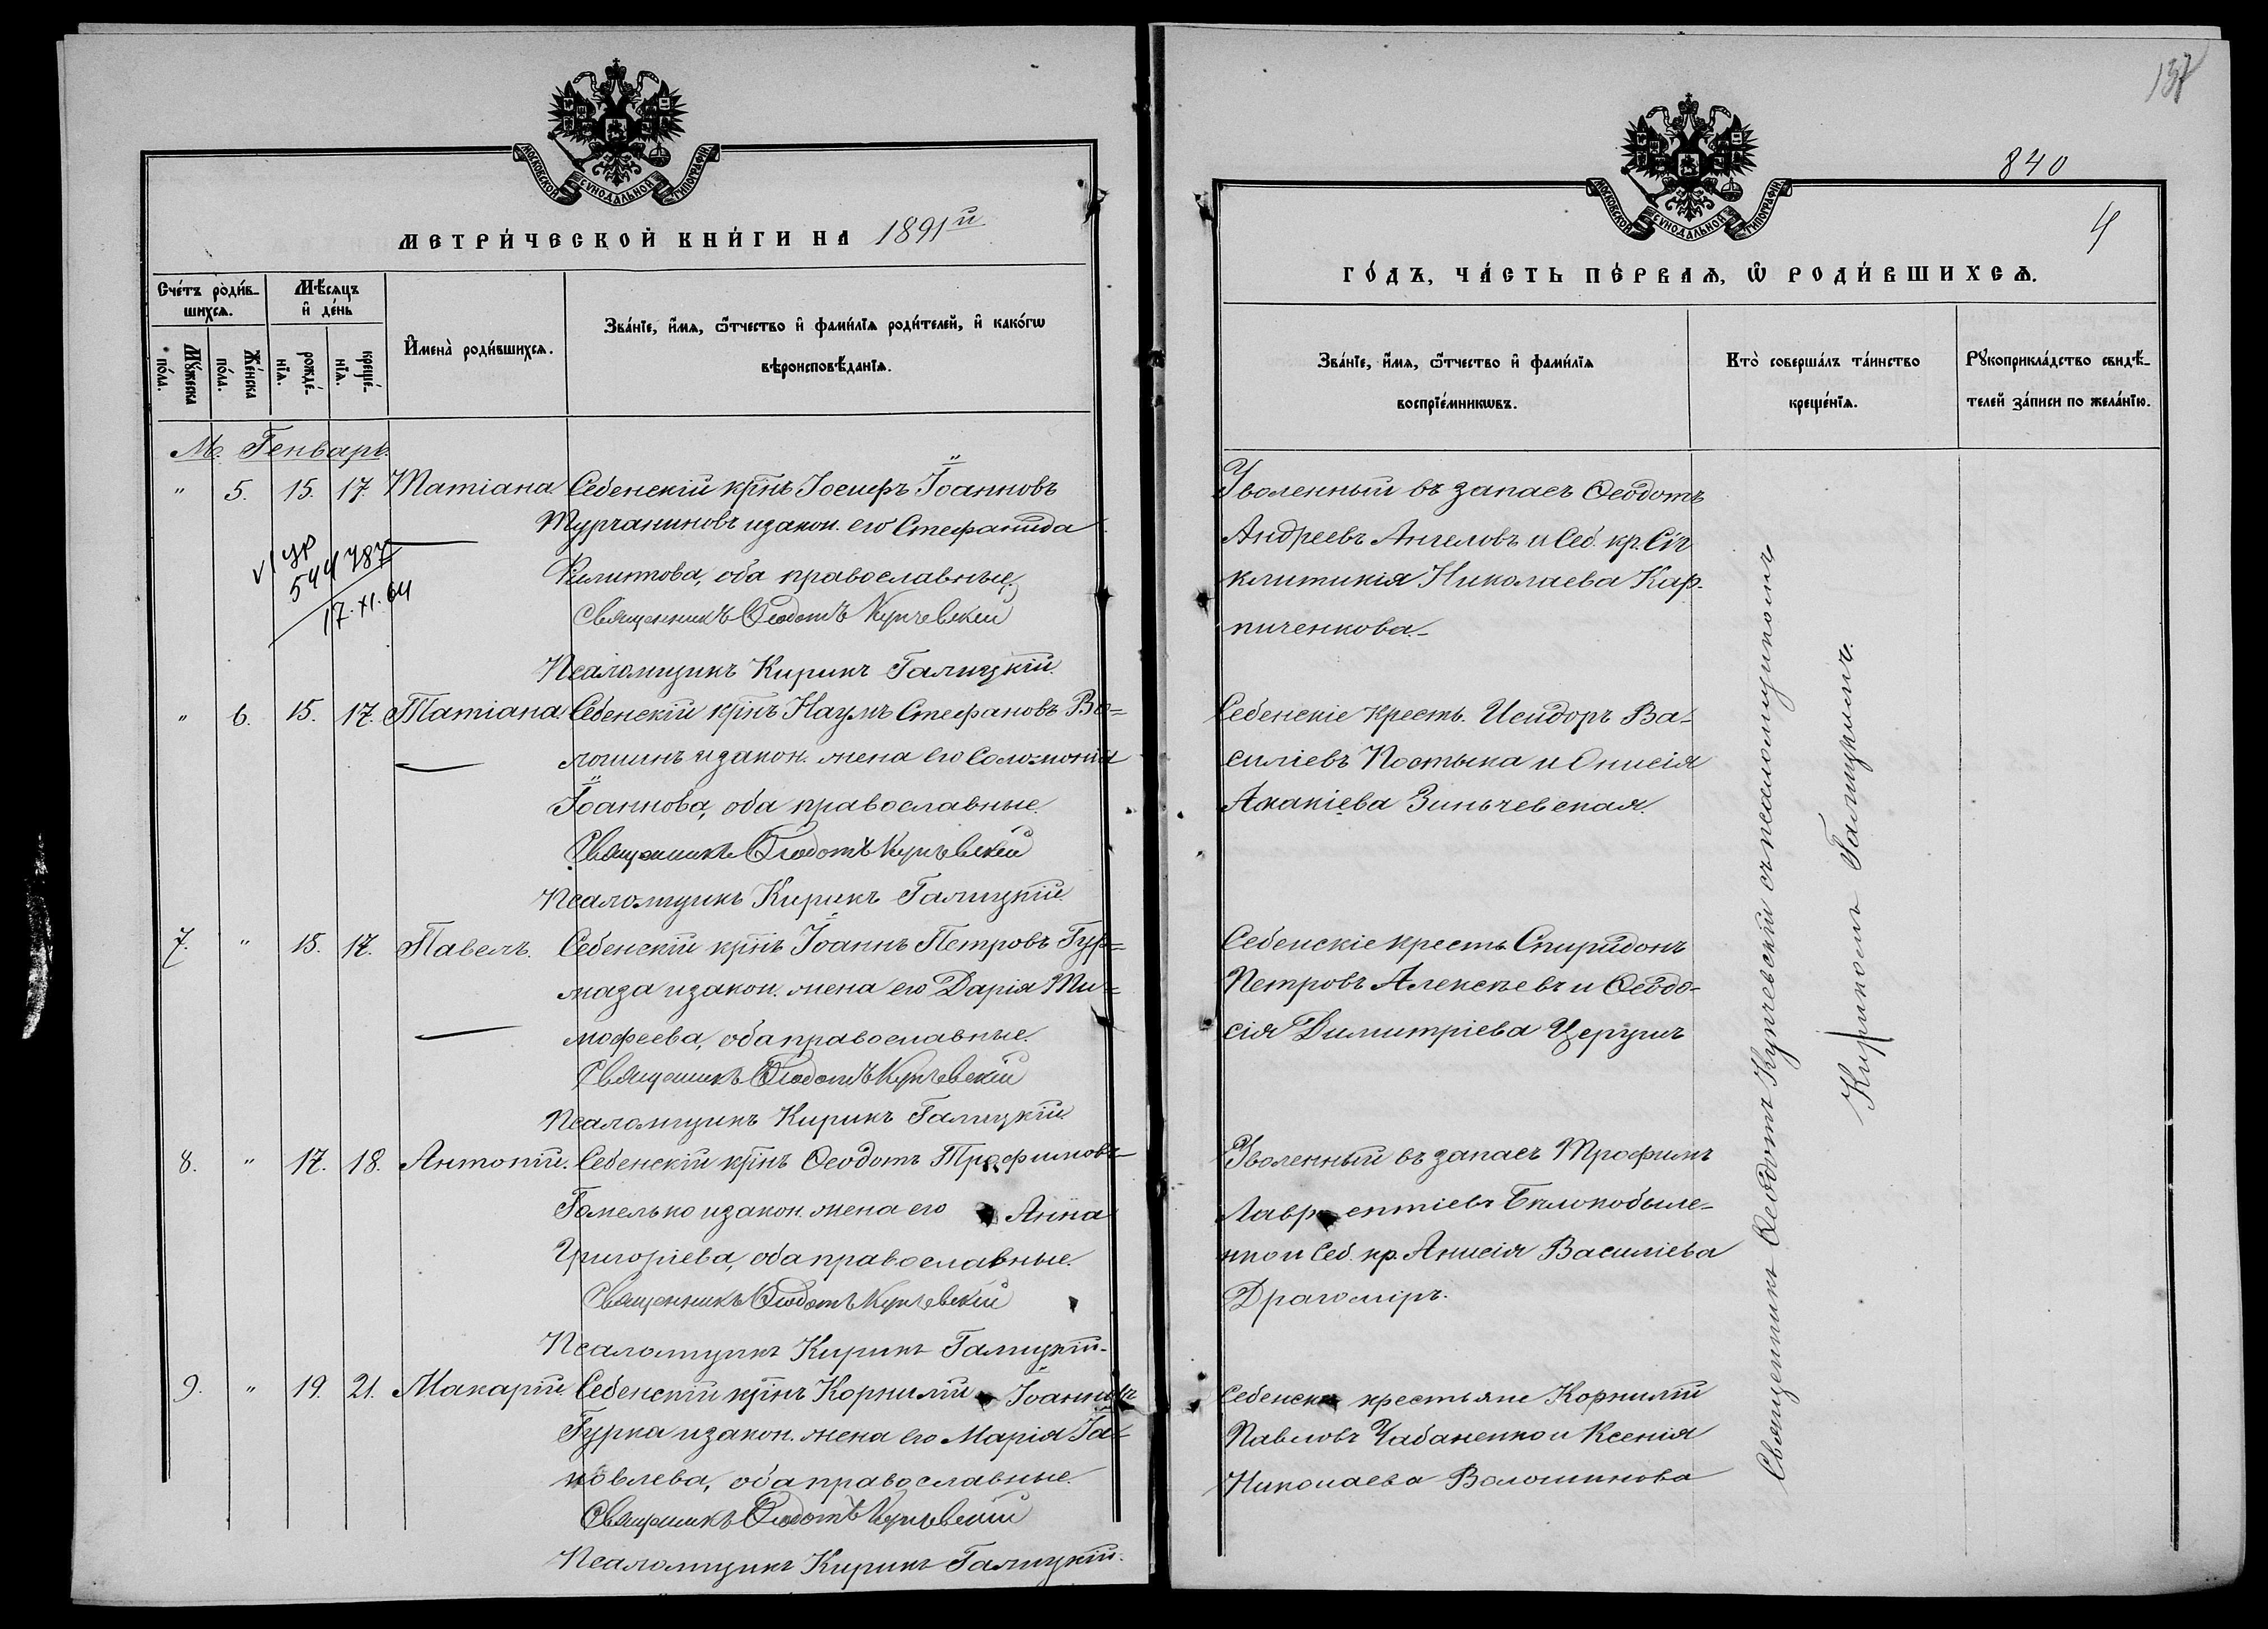 МОСКОВСКОЙ СѴНОДАЛЬНОЙ ТИПОГРАФІИ
МЕТРИ́ЧЕСКОЙ КНИ́ГИ НА 1891й
Сче́тъ роди́в-
шихсѧ.
Мѣ́сѧцъ
и҆ де́нь
Мꙋ́жеска
по́ла.
Же́нска
по́ла.
рожде́-
нїѧ.
креще́-
нїѧ.
И҆мена̀ роди́вшихсѧ.
Зва́нїе, и҆́мѧ, ѻ҆́тчество и҆ фами́лїѧ роди́телей, и҆ како́гѡ
вѣроисповѣ́данїѧ.
М. Генварь.
" 5. 15. 17. Татіана. Себенскій крⷭ҇нъ Іосифъ Іоанновъ
Турчаниновъ и закон. его Стефанида
Филиппова, оба православные.
Священникъ Ѳеодотъ Купчевскій
Псаломщикъ Кирикъ Галицкій.
544 787
17.XI.64
" 6. 15. 17. Татіана. Себенскій крⷭ҇нъ Наумъ Стефановъ Во=
лошинъ и закон. жена его Соломонія
Іоаннова, оба православные.
Священникъ Ѳеодотъ Купчевскій
Псаломщикъ Кирикъ Галицкій.
7. " 15. 17. Павелъ. Себенскій крⷭ҇нъ Іоаннъ Петровъ Гур=
маза и закон. жена его Дарія Ти=
мофеева, оба православные.
Священникъ Ѳеодотъ Купчевскій
Псаломщикъ Кирикъ Галицкій
8. " 17. 18. Антоній. Себенскій крⷭ҇нъ Ѳеодотъ Трофимовъ
Гомелько и закон. жена его Анна
Григоріева, оба православные.
Священникъ Ѳеодотъ Купчевскій
Псаломщикъ Кирикъ Галицкій.
9. " 19. 21. Макарій. Себенскій крⷭ҇нъ Корнилій Іоанновъ
Гурка и закон. жена его Марія Іа-
ковлева, оба православные.
Священникъ Ѳеодотъ Купчевскій
Псаломщикъ Кирикъ Галицкій.
137
840
4
МОСКОВСКОЙ СѴНОДАЛЬНОЙ ТИПОГРАФІИ
ГО́ДЪ, ЧА́СТЬ ПЕ́РВАѦ, Ѡ҆ РОДИ́ВШИХСѦ.
Зва́нїе, и҆́мѧ, ѻ҆́тчество и҆ фами́лїѧ
воспрїе́мникѡвъ.
Кто̀ соверша́лъ та́инство
креще́нїѧ.
Рꙋкоприкла́дство свидѣ́-
телей за́писи по жела́нїю.
Уволенный въ запасъ Ѳеодотъ
Андреевъ Ангеловъ и Себ. кр. Сін-
клитикія Николаева Кар-
пиченкова.
Себенскіе кресть. Исидоръ Ва-
силіевъ Постыка и Онисія
Акакіева Зиньчевская.
Себенскіе кресть. Спиридонъ
Петровъ Алексѣевъ и Ѳеодо-
сія Димитріева Церунъ
Уволенный въ запасъ Трофимъ
Лаврентіевъ Бѣлокобыле-
нко и Себ. кр. Анисія Василіева
Драгоміръ.
Себенскіе крестьяне Корнилій
Павловъ Чабаненко и Ксенія
Николаева Волошинова
Священникъ Ѳеодотъ Купчевскій съ псаломщикомъ
Кирикомъ Галицкимъ.